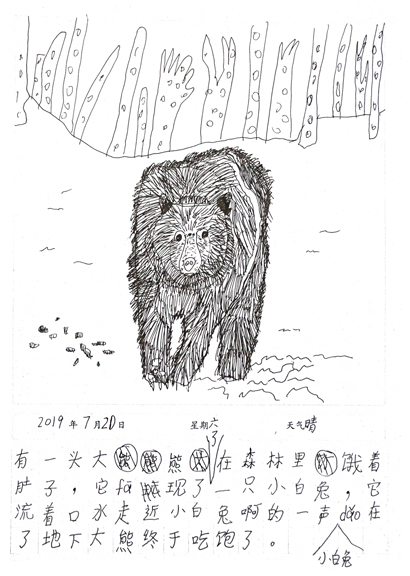 2019年7月20日 星期六 天气晴
有一头大熊在森林里饿着
肚子，它fā现了一只小白兔，它
流着口水走近小白兔啊的一声dǎo在
了地下大熊终于吃饱了。
小白兔